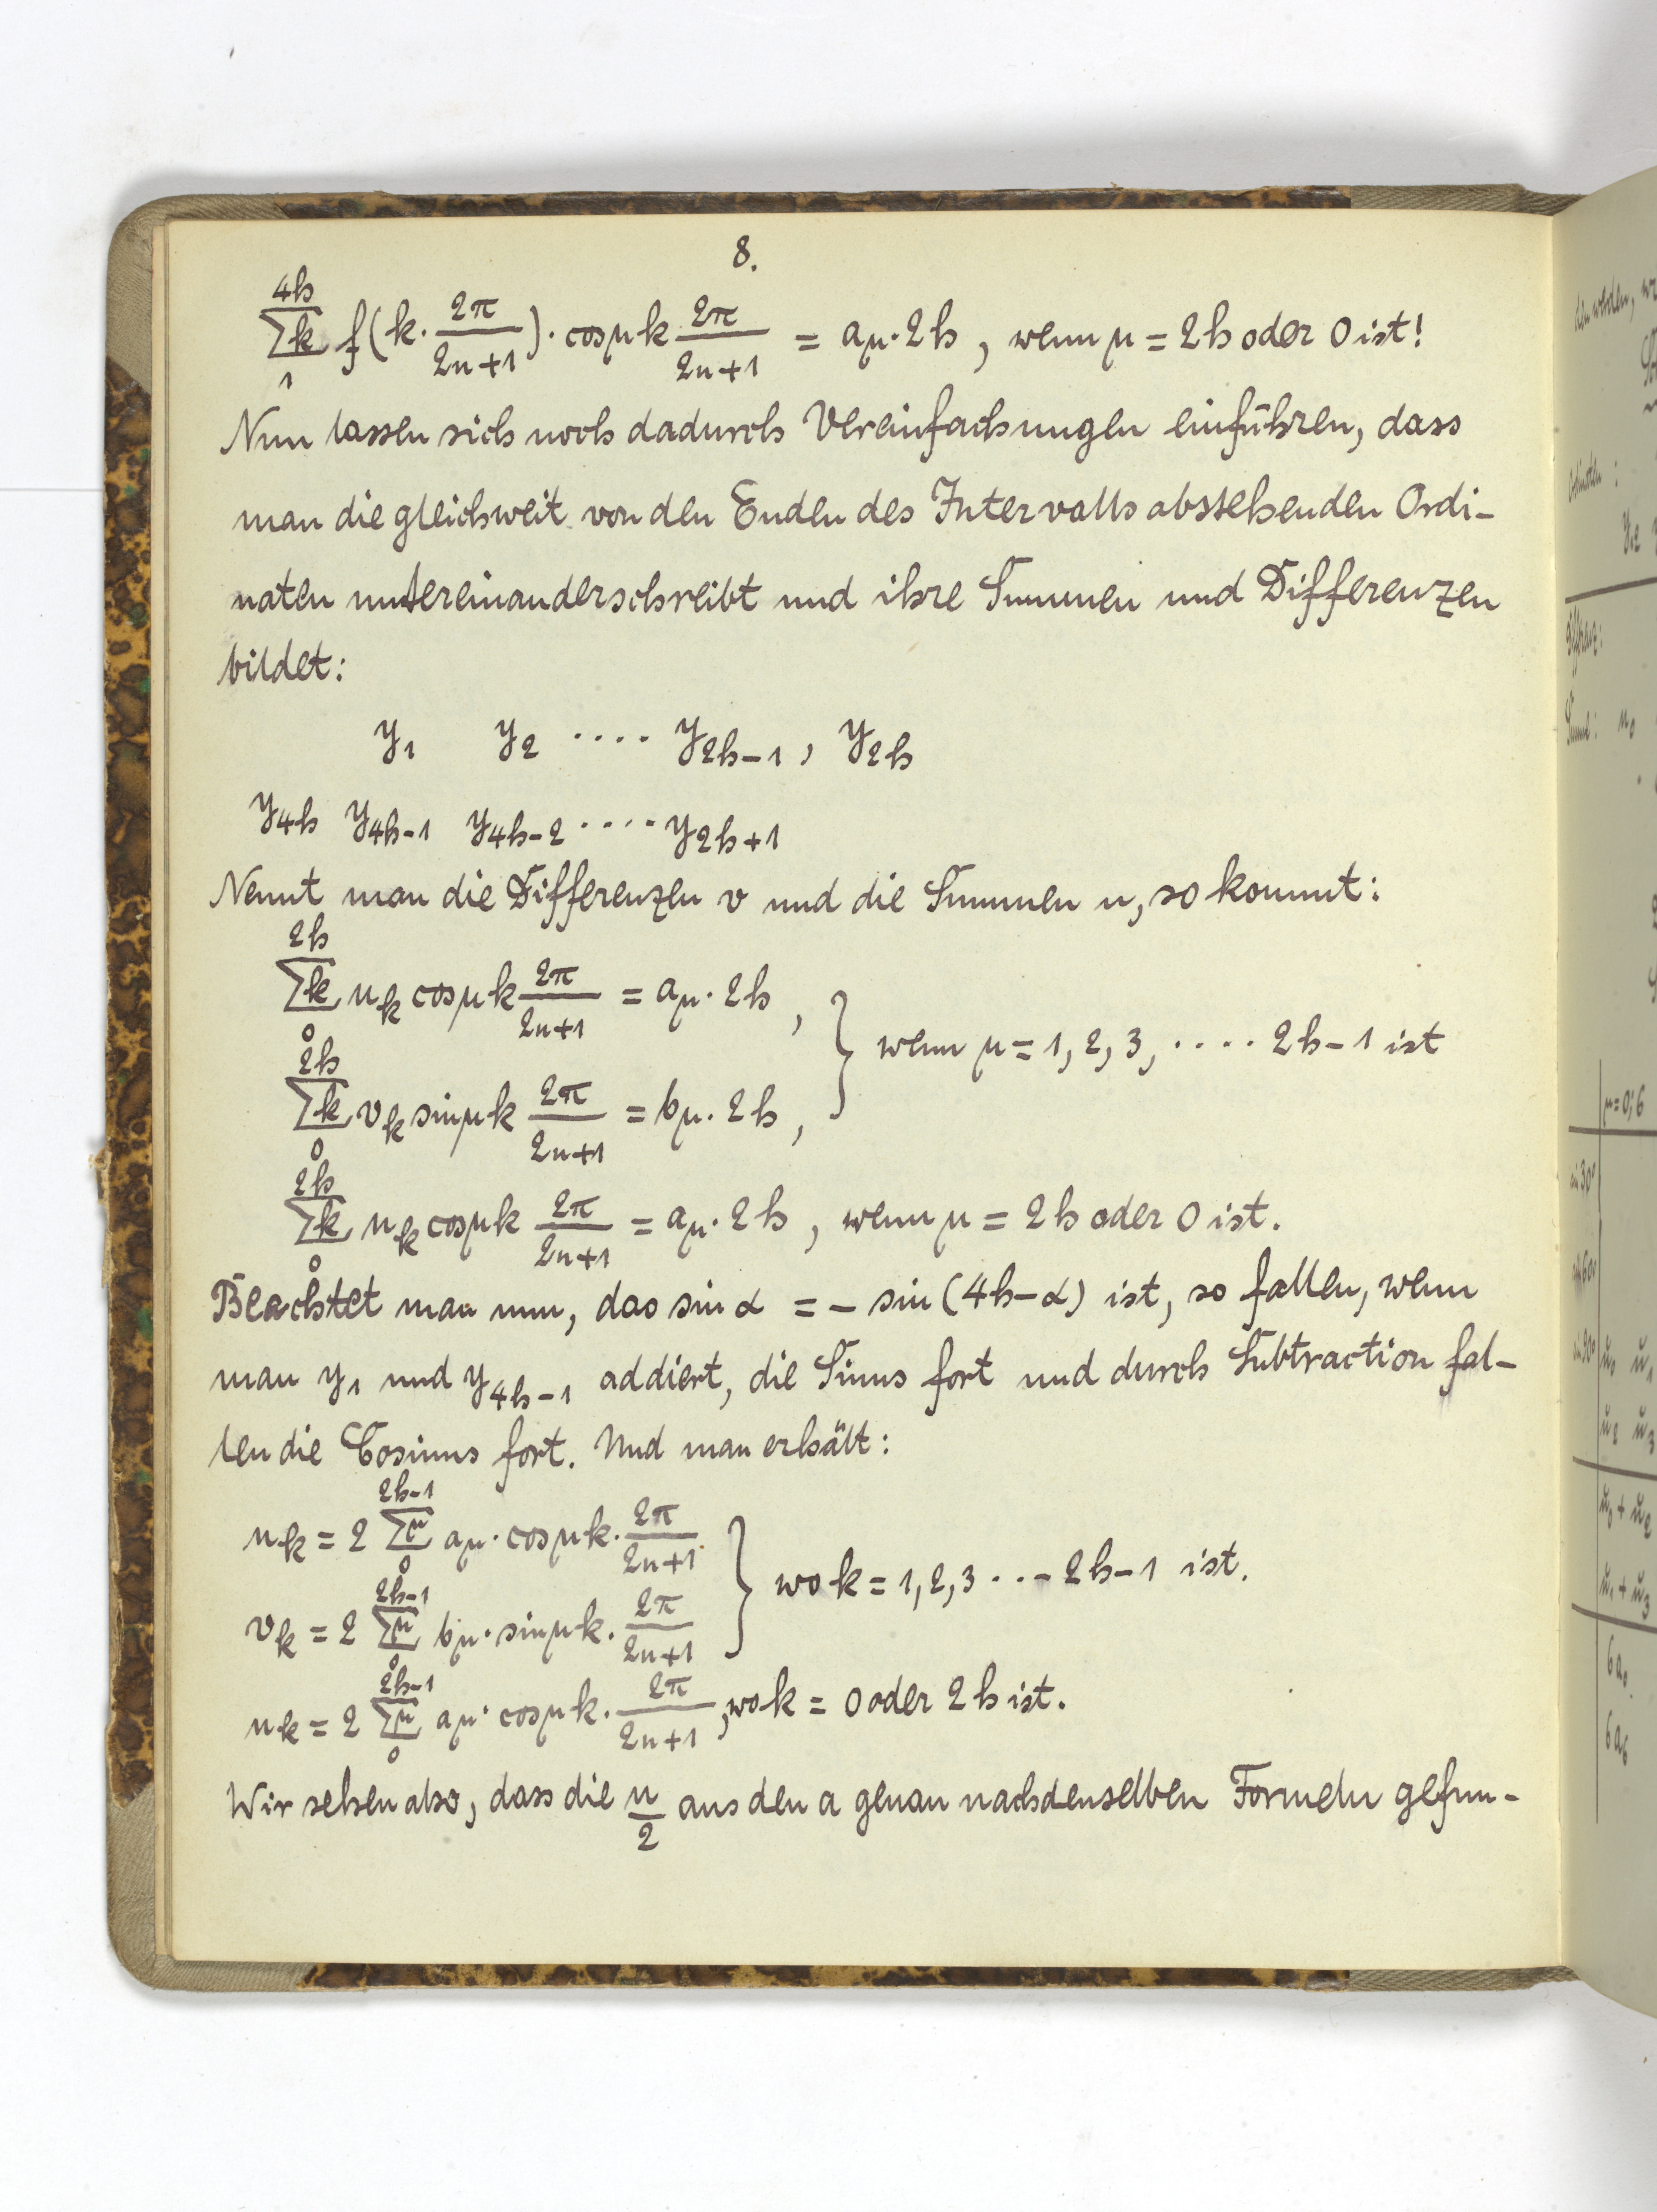 8.
4h
∑k f(k·2π/2n+1)·cosμk 2π/2n+1 = aμ·2h, wenn μ = 2h oder 0 ist!
1
Nun lassen sich noch dadurch Vereinfachungen einführen, dass
man die gleichweit von den Enden des Intervalls abstehenden Ordi-
naten untereinanderschreibt und ihre Summen und Differenzen
bildet:
y₁ y₂ .... y₂ₕ₋₁, y₂ₕ
y₄ₕ y₄ₕ₋₁ y₄ₕ₋₂ .... y₂ₕ₊₁
Nennt man die Differenzen v und die Summen u, so kommt:
2h
∑k uₖ cosμk 2π/2n+1 = aμ·2h,
0
} wenn μ = 1, 2, 3, .... 2h-1 ist
2h
∑k vₖ sinμk 2π/2n+1 = bμ·2h,
0
2h
∑k uₖ cosμk 2π/2n+1 = aμ·2h, wenn μ = 2h oder 0 ist.
0
Beachtet man nun, das sin α = - sin(4h-α) ist, so fallen, wenn
man y₁ und y₄ₕ₋₁ addiert, die Sinus fort und durch Subtraction fal-
len die Cosinus fort. Und man erhält:
2h-1
uₖ = 2 ∑μ aμ·cosμk·2π/2n+1
0
} wo k = 1, 2, 3 ... 2h-1 ist.
2h-1
vₖ = 2 ∑μ bμ·sinμk·2π/2n+1
0
2h-1
uₖ = 2 ∑μ aμ·cosμk·2π/2n+1, wo k = 0 oder 2h ist.
0
Wir sehen also, dass die u/2 aus den a genau nach denselben Formeln gefun-
den werden,
μ=0; 6
u₀ u₁
u₂ u₃
u₀+u₂
u₁+u₃
6a₀
6a₆